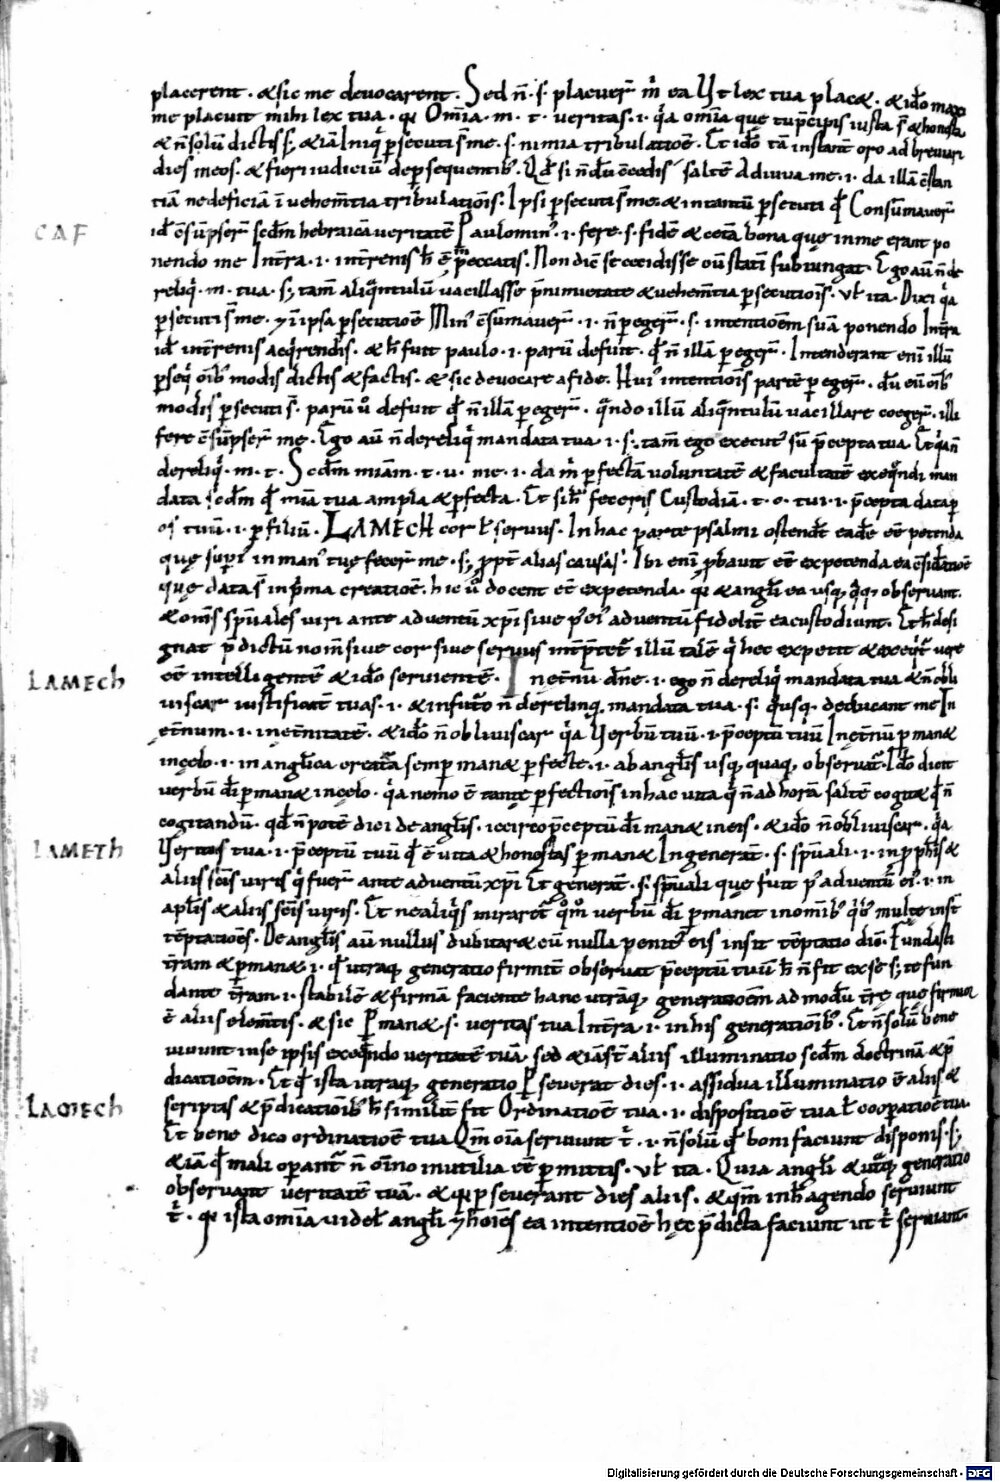 placerent . & sic me devocarent . Sed n̄ . s . placuer̄ m̄ ea Ut lex tua placet . & ido maxi
me placuit mihi lex tua . q̄ Omīa . m . t . veritas . i . q̄a omīa que tu p̄cipis iusta s̄ & honesta
& n̄ solū dictis s; & iā Iniq̄ p̄secuti s̄ me . s . nimia tribulatiōe . Et ido tā instant̄ oro ad breviari
dies meos . & fieri iudiciū de p̄sequentib; . Qd̄ si n̄dū c̄cedis saltē Adiuva me . i . da illā c̄stan
tiā ne deficiā ī vehem̄tia tribulatiōis . Ipsi p̄secuti s̄ me & intantū p̄secuti qd̄ Consūmaver̄
id̄ c̄sūpser̄ sc̄dm hebraicā veritatē Paulomin; . i . fere . s . fidē & cet̄a bona que in me erant po
nendo me In t̄ra . i . in t̄renis h̄ ē peccatis . Non diē se cecidisse cū statī subiungat . Ego aū n̄ de
reliq̄ . m . tua . s; tam̄ aliq̄ntulū vacillasse p̄ nimietate & vehem̄tia p̄secutiōis . vl̄ ita . Dixi q̄a
p̄secuti s̄ me . & ī ipsa p̄secutiōe Min; c̄sumaver̄ . i . n̄ peger̄ . s . intentiōem suā ponendo In t̄ra
id̄ in t̄renis acq̄rendis . & h̄ fuit paulo . i . parū defuit . qd̄ n̄ illā peger̄ . Intenderant enī illū
p̄seq̄ oīb; modis dictis & factis . & sic devocare a fide . Hui; intentiōis partē peger̄ . dū eū oīb;
modis p̄secuti s̄ . parū v̊ defuit qd̄ n̄ illā peger̄ . q̄ndo illū aliq̄ntulū vacillare coeger̄ . illi
fere c̄sūpser̄ me . Ego aū n̄ dereliq̄ mandata tua . i . s; tam̄ ego execut; sū p̄cepta tua . Et q̄a n̄
dereliq̄ . m . t . Sc̄dm miām . t . v . me . i . da m̄ p̄fectā voluntatē & facultatē exeq̄ndi man
data sc̄dm qd̄ mīa tua ampla & p̄fecta . Et si h̄ feceris Custodiā . t . o . tui . i . p̄cepta data p̄
os tuū . i . p̄ filiū . LAMECH cor vl̄ servus . In hac parte psalmi ostendit eadē eē petenda
que supi; in man; tue fecer̄ me . s; p̄pt̄ alias causas . Ibi enī p̄bavit eē expetenda ea c̄sid̄atiōe
que data s̄ in p̄ma creatiōe . hic v̊ docent eē expetenda . q̄ & angl̄i ea usq; q̄q; observant .
& om̄s sp̄uales viri ante adventū xp̄i sive p; ei; adventū fidelit̄ ea custodiunt . Et h̄ desi
gnat p̄dictū nom̄ sive cor sive servus int̄pretet̄ illū talē q̄ hec expetit & exeq̄t̄ vere
eē intelligentē & ido servientē . In et̄nū dn̄e . i . ego n̄ dereliq̄ mandata tua & n̄ obli
viscar iustificat̄ tuas . i . & in futuro n̄ derelinq̄ mandata tua . s . q̄usq; deducant me In
et̄num . i . in et̄nitatē . & ido n̄ obliviscar q̄a Verbū tuū . i . p̄ceptū tuū In et̄nū p̄man&
in celo . i . in anglica creat̄a semp̄ man& p̄fecte . i . ab angl̄is usq; quaq; observat̄ . Ido dicit
verbū di p̄man& in celo . q̄a nemo ē tante p̄fectiōis in hac vita q̄ n̄ ad horā saltē cogitet qd̄ n̄
cogitandū . qd̄ n̄ potē dici de angl̄is . iccirco p̄ceptū di man& in eis . & ido n̄ obliviscar . q̄a
Veritas tua . i . p̄ceptū tuū qd̄ ē vita & honestas p̄man& In generat̄ . s . sp̄uali . i . in p̄phis &
aliis sc̄is viris q̄ fuer̄ ante adventū xp̄i Et generat̄ . s . sp̄uali que fuit p; adventū ei; . i . in
apl̄is & aliis sc̄is viris . Et ne aliq̄s miraret̄ q̊m verbū di p̄manet in om̄ib; q̄b; multe inst̄
tēptatiōes . De angl̄is aū nullus dubitaret cū nulla penit; eis insit tēptatio dic̄ . Fundasti
t̄ram & p̄man& . i . qd̄ utraq; generatio firmit̄ observat p̄ceptū tuū h̄ n̄ fit ex se s; te fun
dante t̄ram . i . stabilē & firmā faciente hanc utrāq; generatiōem ad modū t̄re que firmior
ē aliis elem̄tis . & sic Perman& . s . veritas tua In t̄ra . i . in his generatiōib; . Et n̄ solū bene
vivunt in se ipsis exeq̄ndo veritatē tuā sed & iā s̄t aliis illuminatio sc̄dm doctrinā & p̄
dicatiōem . Et qd̄ ista utraq; generatio Perseverat dies . i . assidua illuminatio ē aliis &
scriptis & p̄dicatiōib; h̄ similit̄ fit Ordinatiōe tua . i . dispositiōe tua vl̄ cooperatiōe tua .
Et bene dico ordinatiōe tua Qm̄ oīa serviunt t̄ . i . n̄ solū qd̄ boni faciunt disponis . s;
& iā qd̄ mali operant̄ n̄ oīno inutilia eē p̄mittis . vl̄ ita . Quia angl̄i & utraq; generatio
observant veritatē tuā . & q̄ p̄severant dies aliis . & qm̄ in h̄ agendo serviunt
t̄ . q̄ ista omīa videl̄ angl̄i & hōies ea intentiōe hec p̄dicta faciunt ut t̄ serviant .
CAF
LAMECH
LAMETH
LAMECH
Digitalisierung gefördert durch die Deutsche Forschungsgemeinschaft - DFG